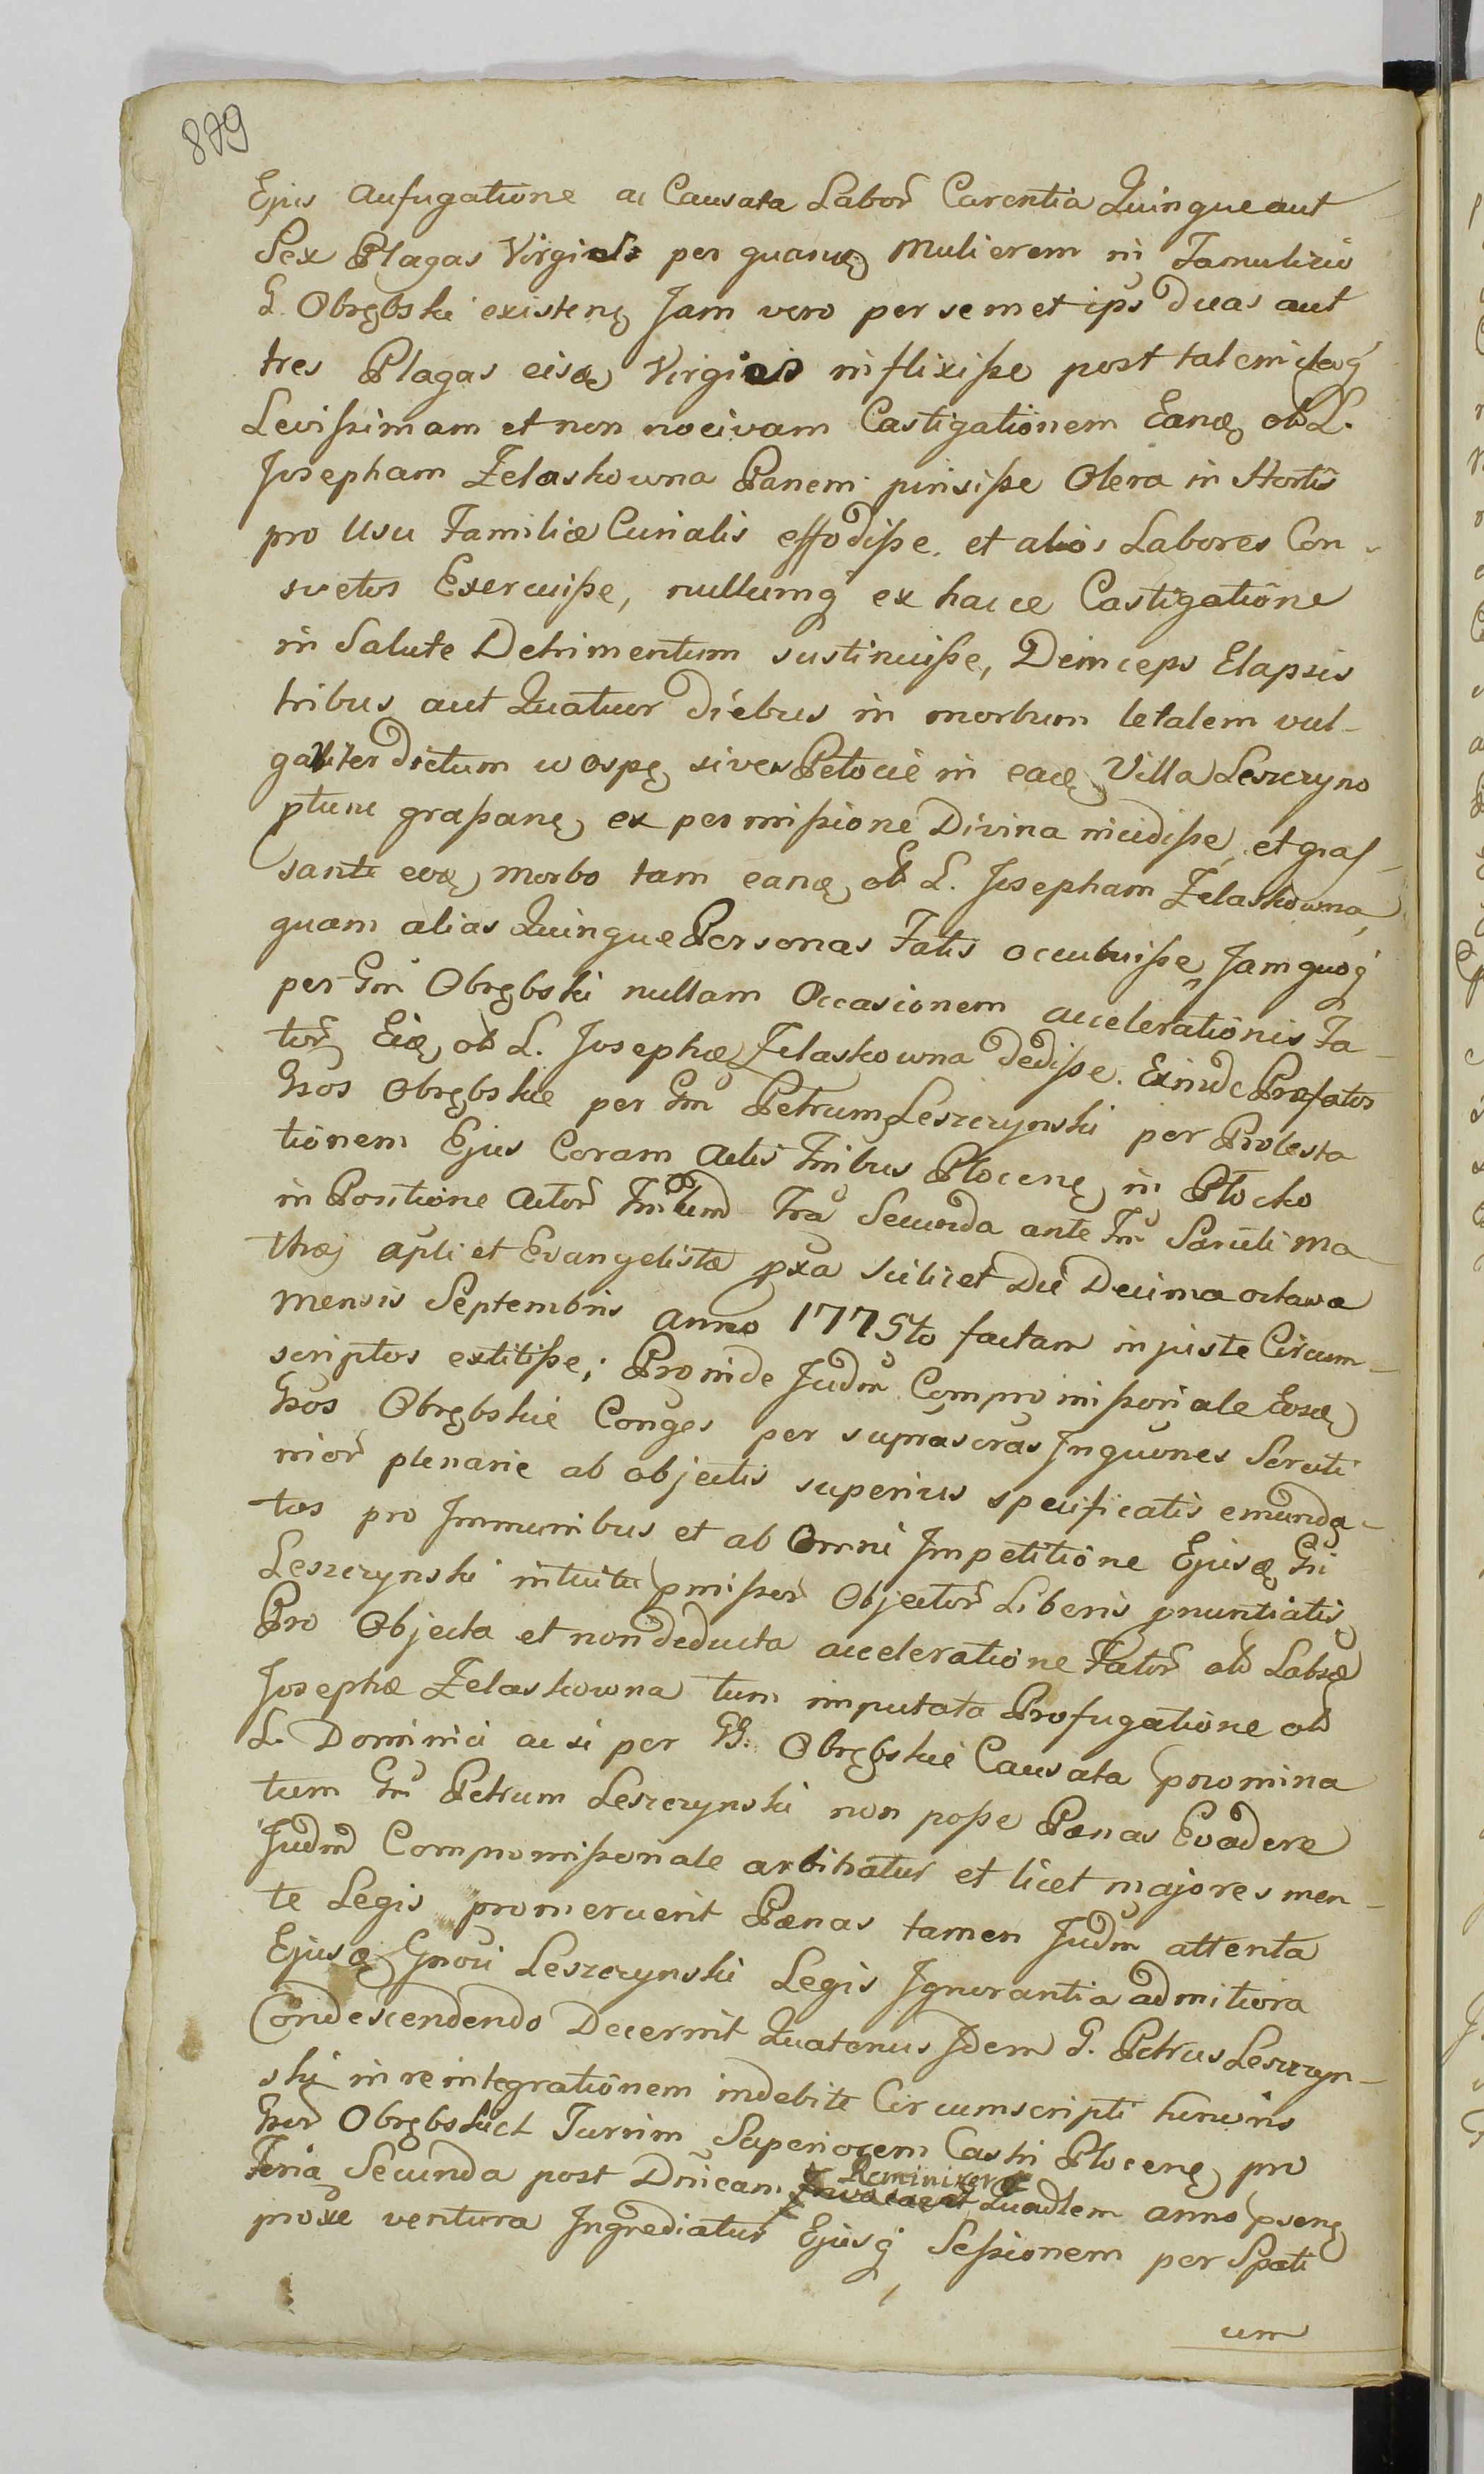 879
Ejus aufugatione ac Causata Labor Carentia Quinque aut
Sex Plagas Virgis per quanę mulierem in Famulitio
G. Obrębski existenę Jam vero per semet ips duas aut
tres Plagas eisdę Virgis inflixiße post talemq
Levißimam et non nocivam Castigationem Eandę olim L.
Josepham Zelaskowna Panem pinsiße Olera in Hortis
pro Usu Familiæ Curialis effodiße, et alios Labores Con-
svetos Exercuiße, nullumq ex hacce Castigatione
in Salute Detrimentum sustinuiße, Deinceps Elapsis
tribus aut Quatuor diebus in morbum letalem vul-
gariter dictum w ospę sive Petocie in eadę Villa Leszczyno
ptunc graßanę ex permißione Divina incidiße, et graſ-
sante eodę morbo tam eandę ol L. Josepham Zelaskowna,
quam alias Quinque Personas Fatis occubuiße, Jamquoq
per Gm Obrębski nullam Occasionem accelerationis Fa-
tor Eidę ol L. Josephæ Zelaskowna dediße. Exinde Præfatos
Gsos Obrębskie per Gm Petrum Leszczynski per Protesta
tionem Ejus Coram Actis Tribus Plocenę in Płocko
in Positione Actor Trilium Fra Secunda ante Fm Sancti Ma
thæj apli et Evangelistæ pxa scilicet Die Decima octava
mensis Septembris anno 1775to factam injuste Circum-
scriptos extitiße; Proinde Judm Compromißoriale Eosdę
Gsos Obrębskie Conges per suprascras Inqvones Scruti
nior plenarie ab objectis superius specificatis emunda-
tos pro Immunibus et ab Omni Impetitione Ejusdę Gsi
Leszczynski intuitu pmißor Objector Liberis pnuntiatis,
Pro Objecta et non deducta acceleratione Fator ol Labsæ
Josephæ Zelaskowna tum imputata Profugatione ol
L. Dominici acsi per GG. Obrębskie Causata pnomina
tum Gm Petrum Leszczynski non poße Pænas Evadere
Judm Compromißoriale arbitratur et licet majores men-
te Legis promeruerit Pænas tamen Judm attenta
Ejusdę Gnosi Leszczynski Legis Ignorantia ad mitiora
Condescendendo Decernit Quatenus Idem G. Petrus Leszczyn-
ski in reintegrationem indebite Circumscripti honoris
Gsor Obrębskich Turrim Superiorem Castri Plocenę pro
Feria Secunda post Dnicam Reminiscere Quadlem anno psenę
proxe ventura Ingrediatur Ejusq Seßionem per Spati
um